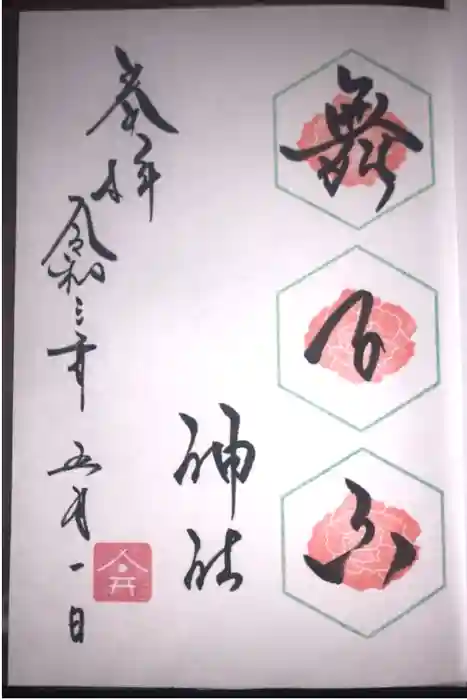 白山
神社
奉拝
令和三年 五月一日